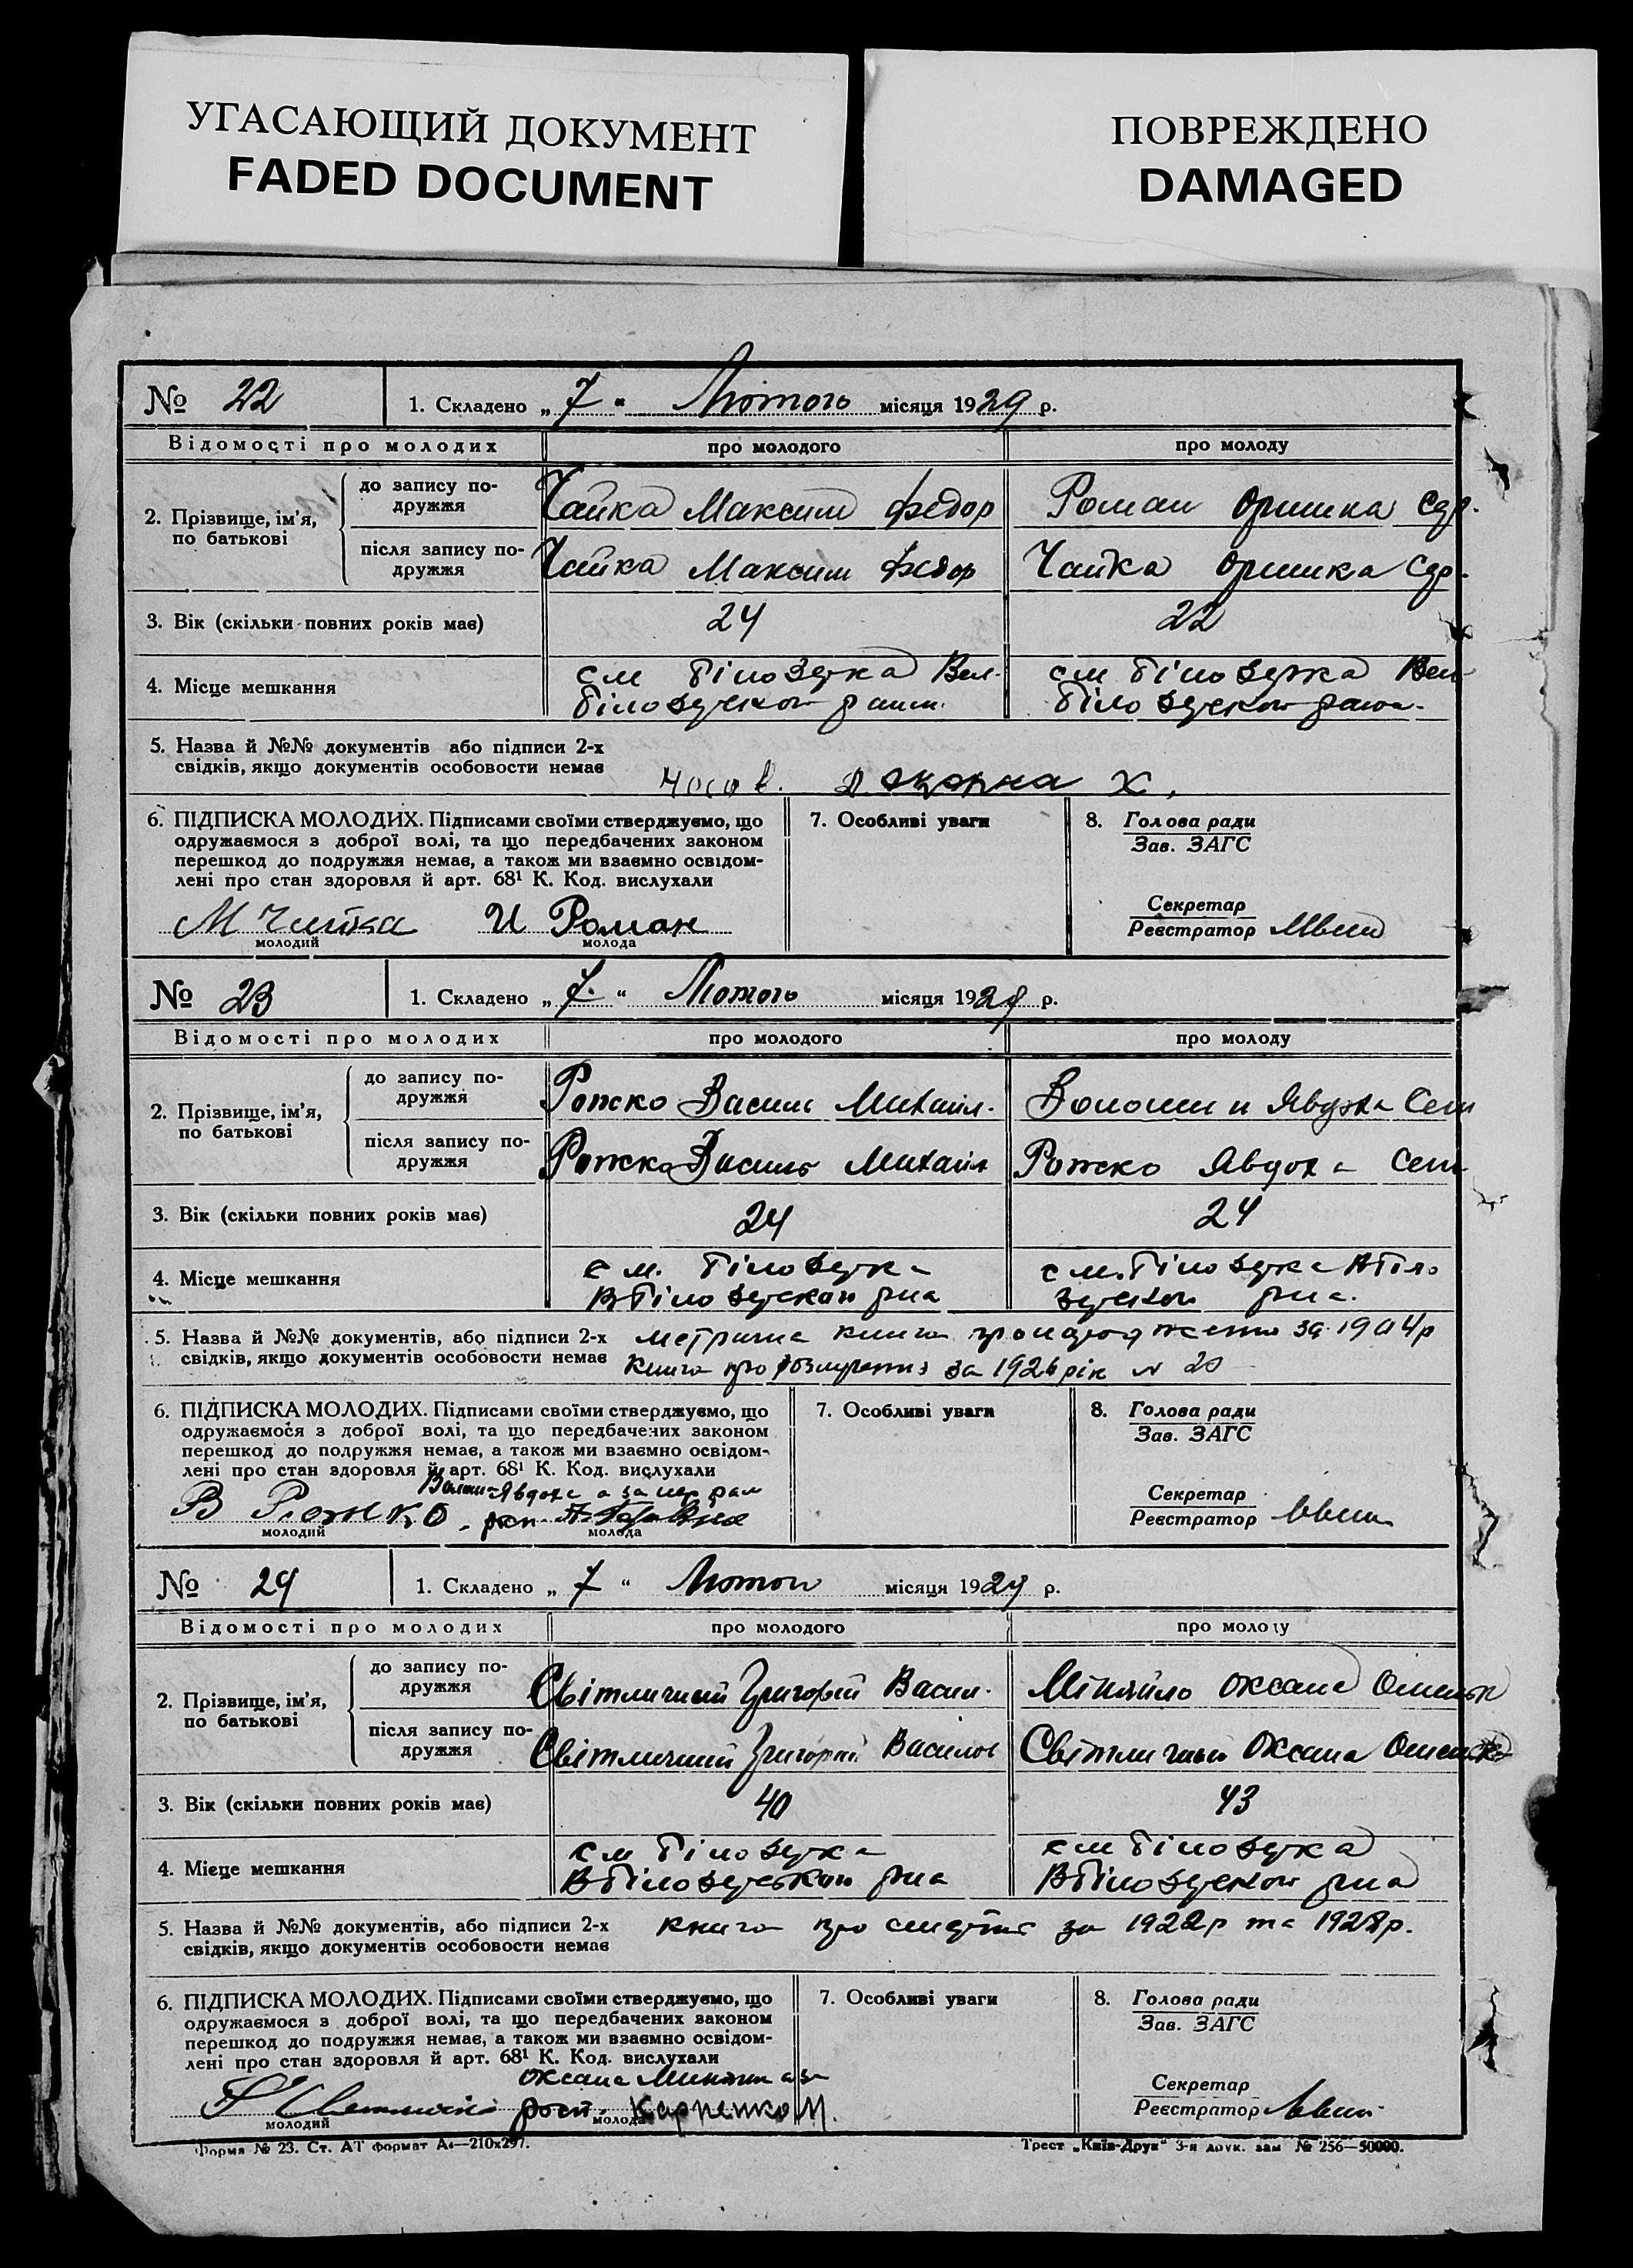 УГАСАЮЩИЙ ДОКУМЕНТ
FADED DOCUMENT
ПОВРЕЖДЕНО
DAMAGED
№ 22 1. Складено „ 7 “ Лютого місяця 1929 р.
Відомості про молодих про молодого про молоду
2. Прізвище, ім'я, по батькові
до запису подружжя Чайка Максим Федор Роман Оришка Сдр.
після запису подружжя Чайка Максим Федор Чайка Оришка Сдр.
3. Вік (скільки повних років має) 24 22
4. Місце мешкання см Білозерка Вел. см Білозерка Вел
Білозерськом район. Білозерськом район.
5. Назва й №№ документів або підписи 2-х
свідків, якщо документів особовости немає
6. ПІДПИСКА МОЛОДИХ. Підписами своїми стверджуємо, що
одружаємося з доброї волі, та що передбачених законом
перешкод до подружжя немає, а також ми взаємно освідом-
лені про стан здоровля й арт. 68¹ К. Код. вислухали
М Чайка И Роман
молодий молода
7. Особливі уваги
8. Голова ради
Зав. ЗАГС
Секретар
Реєстратор
№ 23 1. Складено „ 7. “ Лютого місяця 1929 р.
Відомості про молодих про молодого про молоду
2. Прізвище, ім'я, по батькові
до запису подружжя Рожко Василь Михайл. Волошин Явдоха Сем
після запису подружжя Рожко Василь Михайл Рожко Явдоха Сем
3. Вік (скільки повних років має) 24 24
4. Місце мешкання см. Білозерка см. Білозерка ВБіло
ВБілозерськом рна зерськом рна.
5. Назва й №№ документів, або підписи 2-х метрична книга про народження за 1904р
свідків, якщо документів особовости немає книга про розлучення за 1926 рік № 20
6. ПІДПИСКА МОЛОДИХ. Підписами своїми стверджуємо, що
одружаємося з доброї волі, та що передбачених законом
перешкод до подружжя немає, а також ми взаємно освідом-
лені про стан здоровля й арт. 68¹ К. Код. вислухали
Явдоха а за нер
В Рожко
молодий молода
7. Особливі уваги
8. Голова ради
Зав. ЗАГС
Секретар
Реєстратор
№ 24 1. Складено „ 7 “ Лютого місяця 1929 р.
Відомості про молодих про молодого про молоду
2. Прізвище, ім'я, по батькові
до запису подружжя Світличний Григорій Васил. Міняйло Оксана Омельк
після запису подружжя Світличний Григорій Василов Світличний Оксана Омельк
3. Вік (скільки повних років має) 40 43
4. Місце мешкання см Білозерка см Білозерка
ВБілозерськом рна ВБілозерськом рна
5. Назва й №№ документів, або підписи 2-х книга про смерть за 1922р та 1928р.
свідків, якщо документів особовости немає
6. ПІДПИСКА МОЛОДИХ. Підписами своїми стверджуємо, що
одружаємося з доброї волі, та що передбачених законом
перешкод до подружжя немає, а також ми взаємно освідом-
лені про стан здоровля й арт. 68¹ К. Код. вислухали
Оксана
Карпенко
молодий молода
7. Особливі уваги
8. Голова ради
Зав. ЗАГС
Секретар
Реєстратор
Форма № 23. Ст. АТ формат А4—210х297.
Трест „Київ-Друк“ 3-я друк. зам № 256—50000.